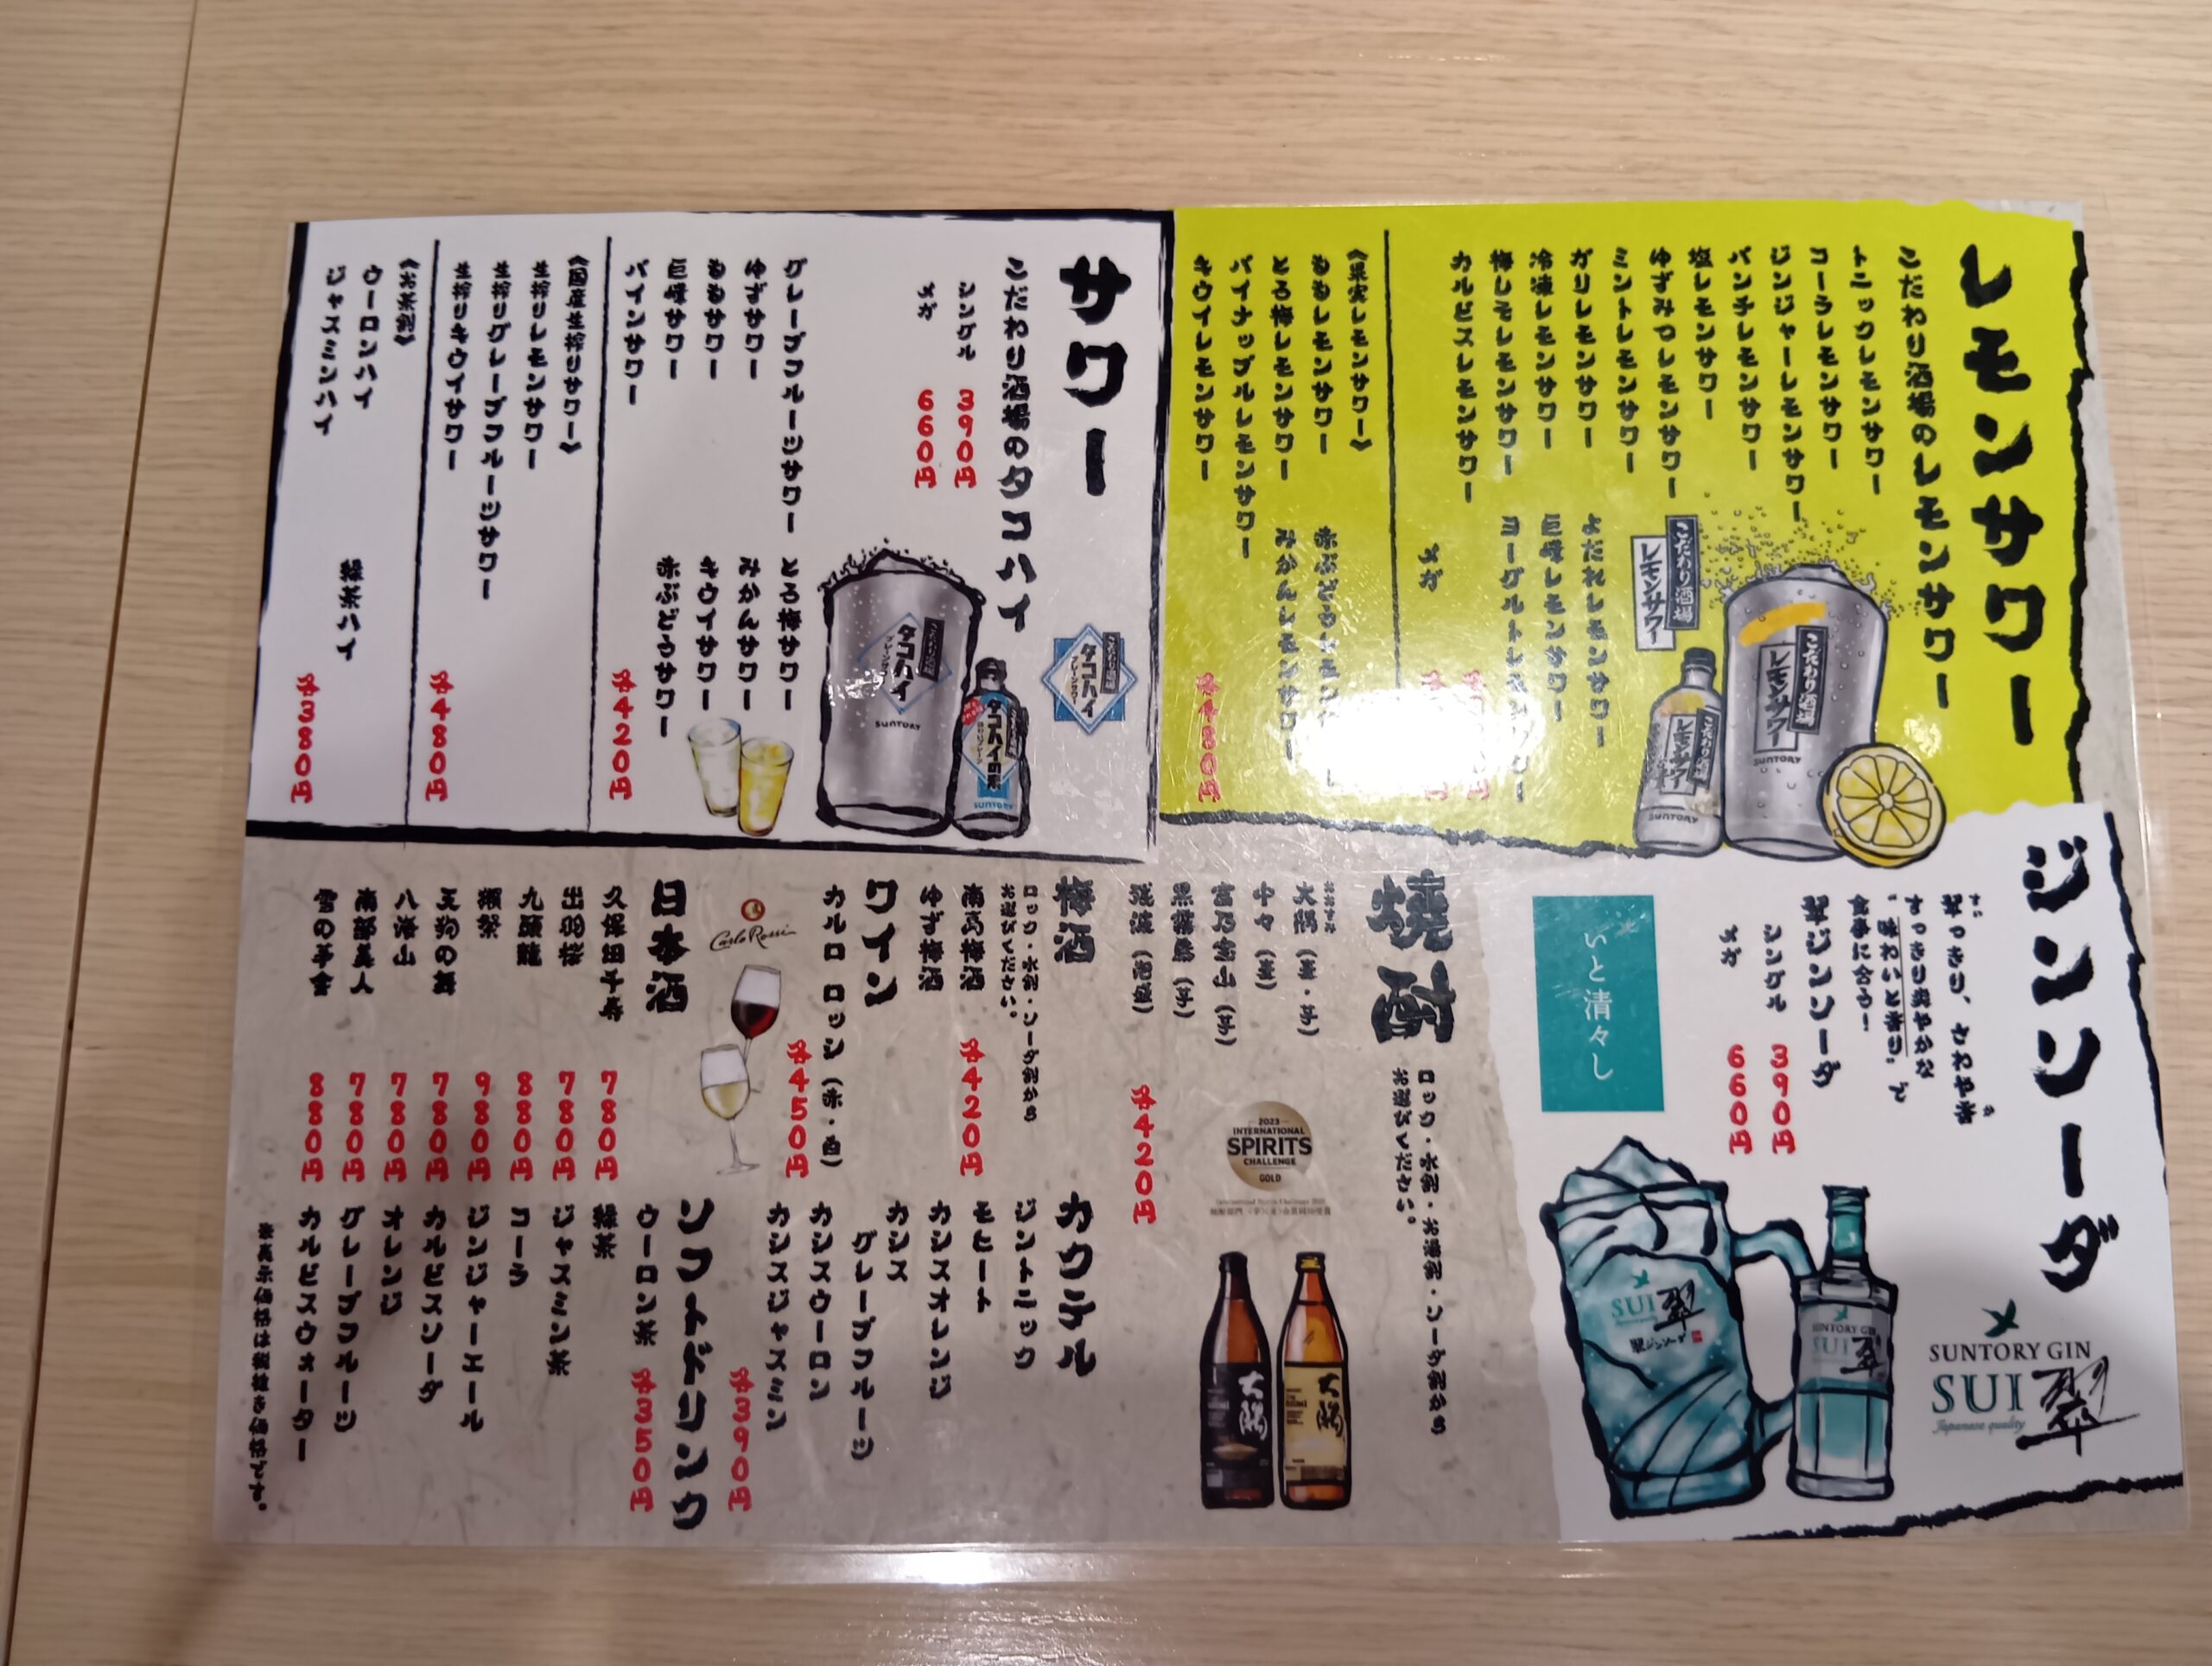 レモンサワー
こだわり酒場のレモンサワー
トニックレモンサワー
コーラレモンサワー
ジンジャーレモンサワー
パンチレモンサワー
塩レモンサワー
ゆずみつレモンサワー
ミントレモンサワー
ガリレモンサワー
冷凍レモンサワー
梅しそレモンサワー
カルピスレモンサワー
よだれレモンサワー
巨峰レモンサワー
メガ
こだわり酒場
レモンサワー
こだわり酒場
レモンサワー
SUNTORY
こだわり酒場
レモンサワー
SUNTORY
《果実レモンサワー》
おおレモンサワー
とろ梅レモンサワー
パイナップルレモンサワー
キウイレモンサワー
みかんレモンサワー
各480円
サワー
こだわり酒場のタコハイ
シングル 390円
メガ 660円
こだわり酒場
タコハイ
プレーンサワー
こだわり酒場
タコハイ
プレーンサワー
SUNTORY
タコハイの素
SUNTORY
グレープフルーツサワー
ゆずサワー
おおサワー
巨峰サワー
パインサワー
とろ梅サワー
みかんサワー
キウイサワー
赤ぶどうサワー
各420円
《国産生搾りサワー》
生搾りレモンサワー
生搾りグレープフルーツサワー
生搾りキウイサワー
各480円
《お茶割》
ウーロンハイ
ジャスミンハイ
緑茶ハイ
各380円
ジンソーダ
食事に合う!
翠ジンソーダ
シングル 390円
メガ 660円
いと清々し
SUNTORY GIN
SUI 翠
Japanese quality
SUI 翠
翠ジンソーダ
SUNTORY GIN
SUI 翠
焼酎
ロック・水割・お湯割・ソーダ割から
お選びください。
おおすみ
大隅(麦・芋)
中々(麦)
富乃宝山(芋)
黒霧島(芋)
残波(泡盛)
各420円
2023
INTERNATIONAL
SPIRITS
CHALLENGE
GOLD
大隅
大隅
梅酒
ロック・水割・ソーダ割から
お選びください。
南高梅酒
ゆず梅酒
各420円
ワイン
カルロ ロッシ(赤・白)
各450円
Carlo Rossi
日本酒
久保田千寿 780円
出羽桜 780円
九頭龍 880円
獺祭 980円
天狗の舞 780円
八海山 780円
南部美人 780円
雪の茅舎 880円
カクテル
ジントニック
モヒート
カシスオレンジ
カシス
グレープフルーツ
カシスウーロン
カシスジャスミン
各390円
ソフトドリンク
ウーロン茶
緑茶
ジャスミン茶
コーラ
ジンジャーエール
カルピスソーダ
オレンジ
グレープフルーツ
カルピスウォーター
各350円
※表示価格は税抜き価格です。